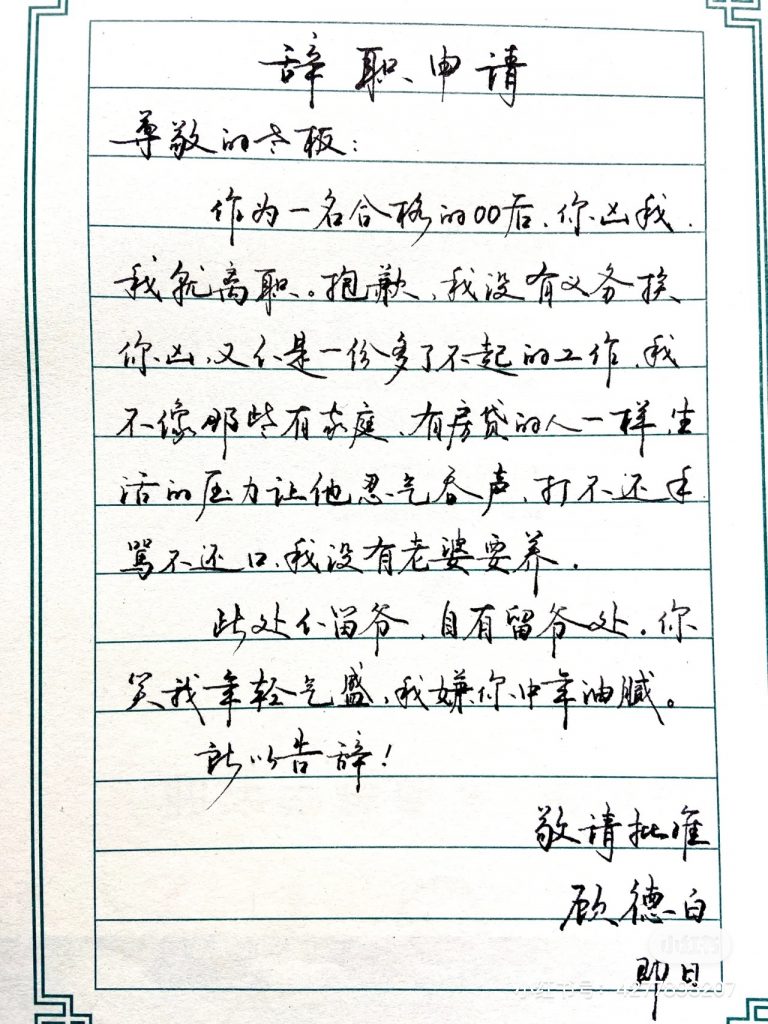 辞职申请
尊敬的老板：
作为一名合格的00后、你凶我、
我就离职。抱歉、我没有义务挨
你凶、又不是一份多了不起的工作、我
不像那些有家庭、有房贷的人一样、生
活的压力让他忍气吞声、打不还手
骂不还口、我没有老婆要养.
此处不留爷、自有留爷处.你
笑我年轻气盛、我嫌你中年油腻。
就此告辞！
敬请批准
顾德白
即日
小红书
小红书号：4277833207